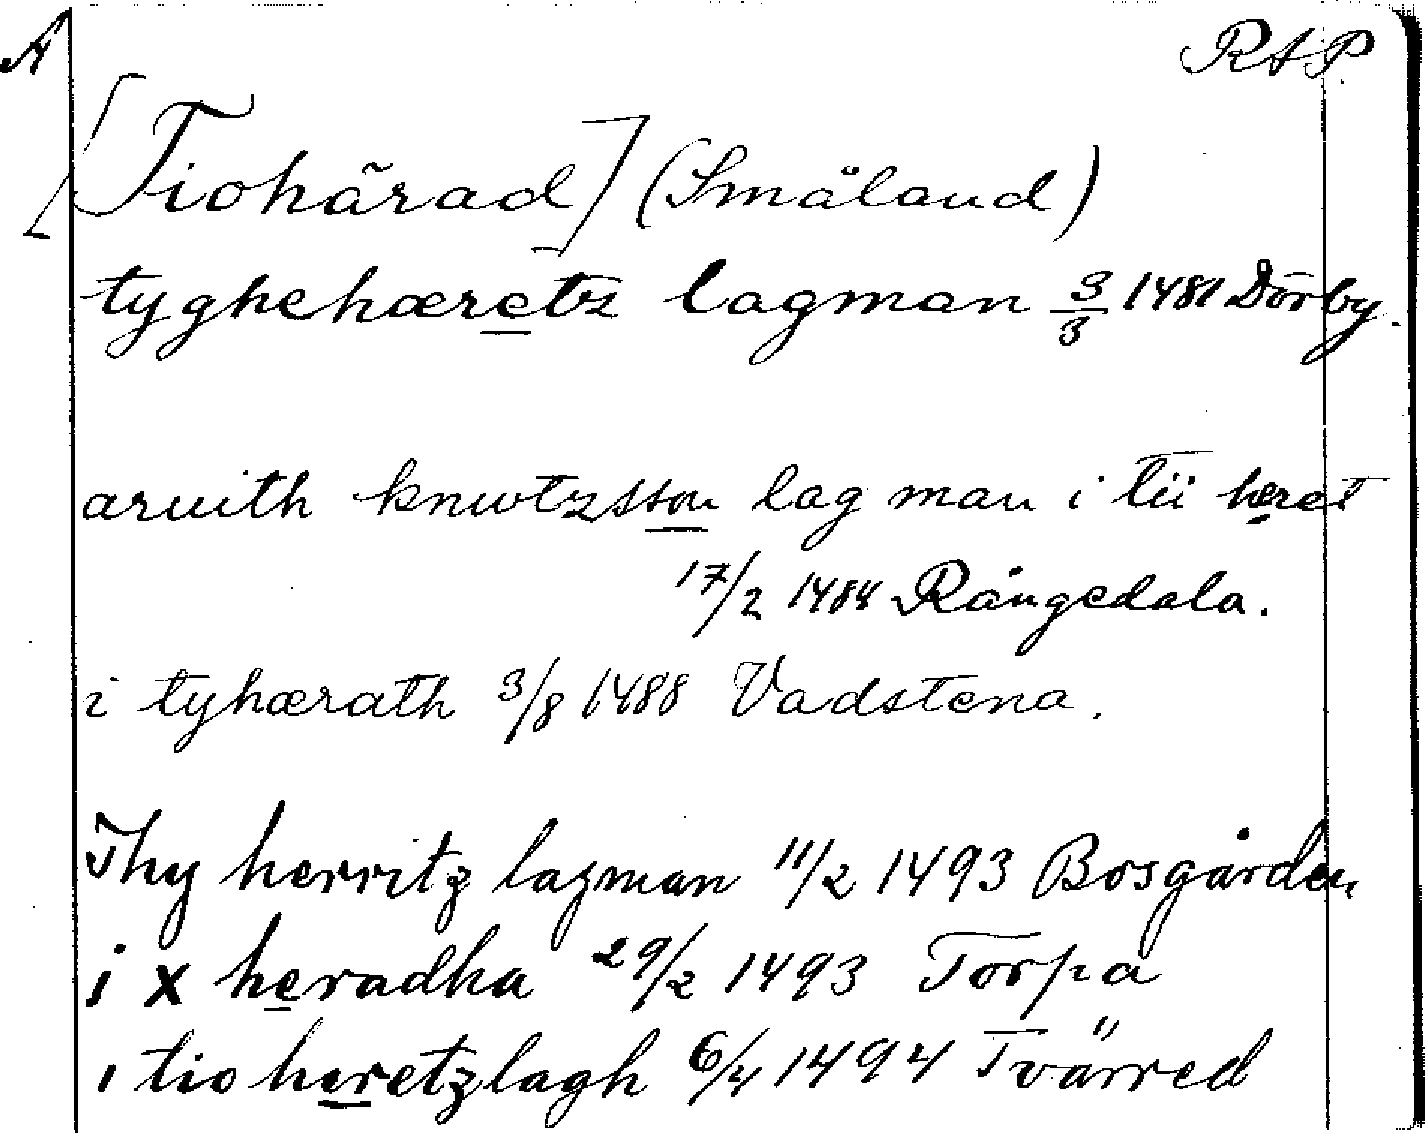 A RAP.
[Tiohärad] (Småland)
tyghehæretz lagman 3/3 1481 Dörby.
aruith knwtzsson lag man i tii hæret
17/2 1484 Rångedala.
i tyhærath 3/8 1488 Vadstena.
Thy herritz lagman 11/2 1493 Bosgården
i x heradha 29/2 1493 Torpa
i tio heretzlagh 6/4 1494 Tvärred